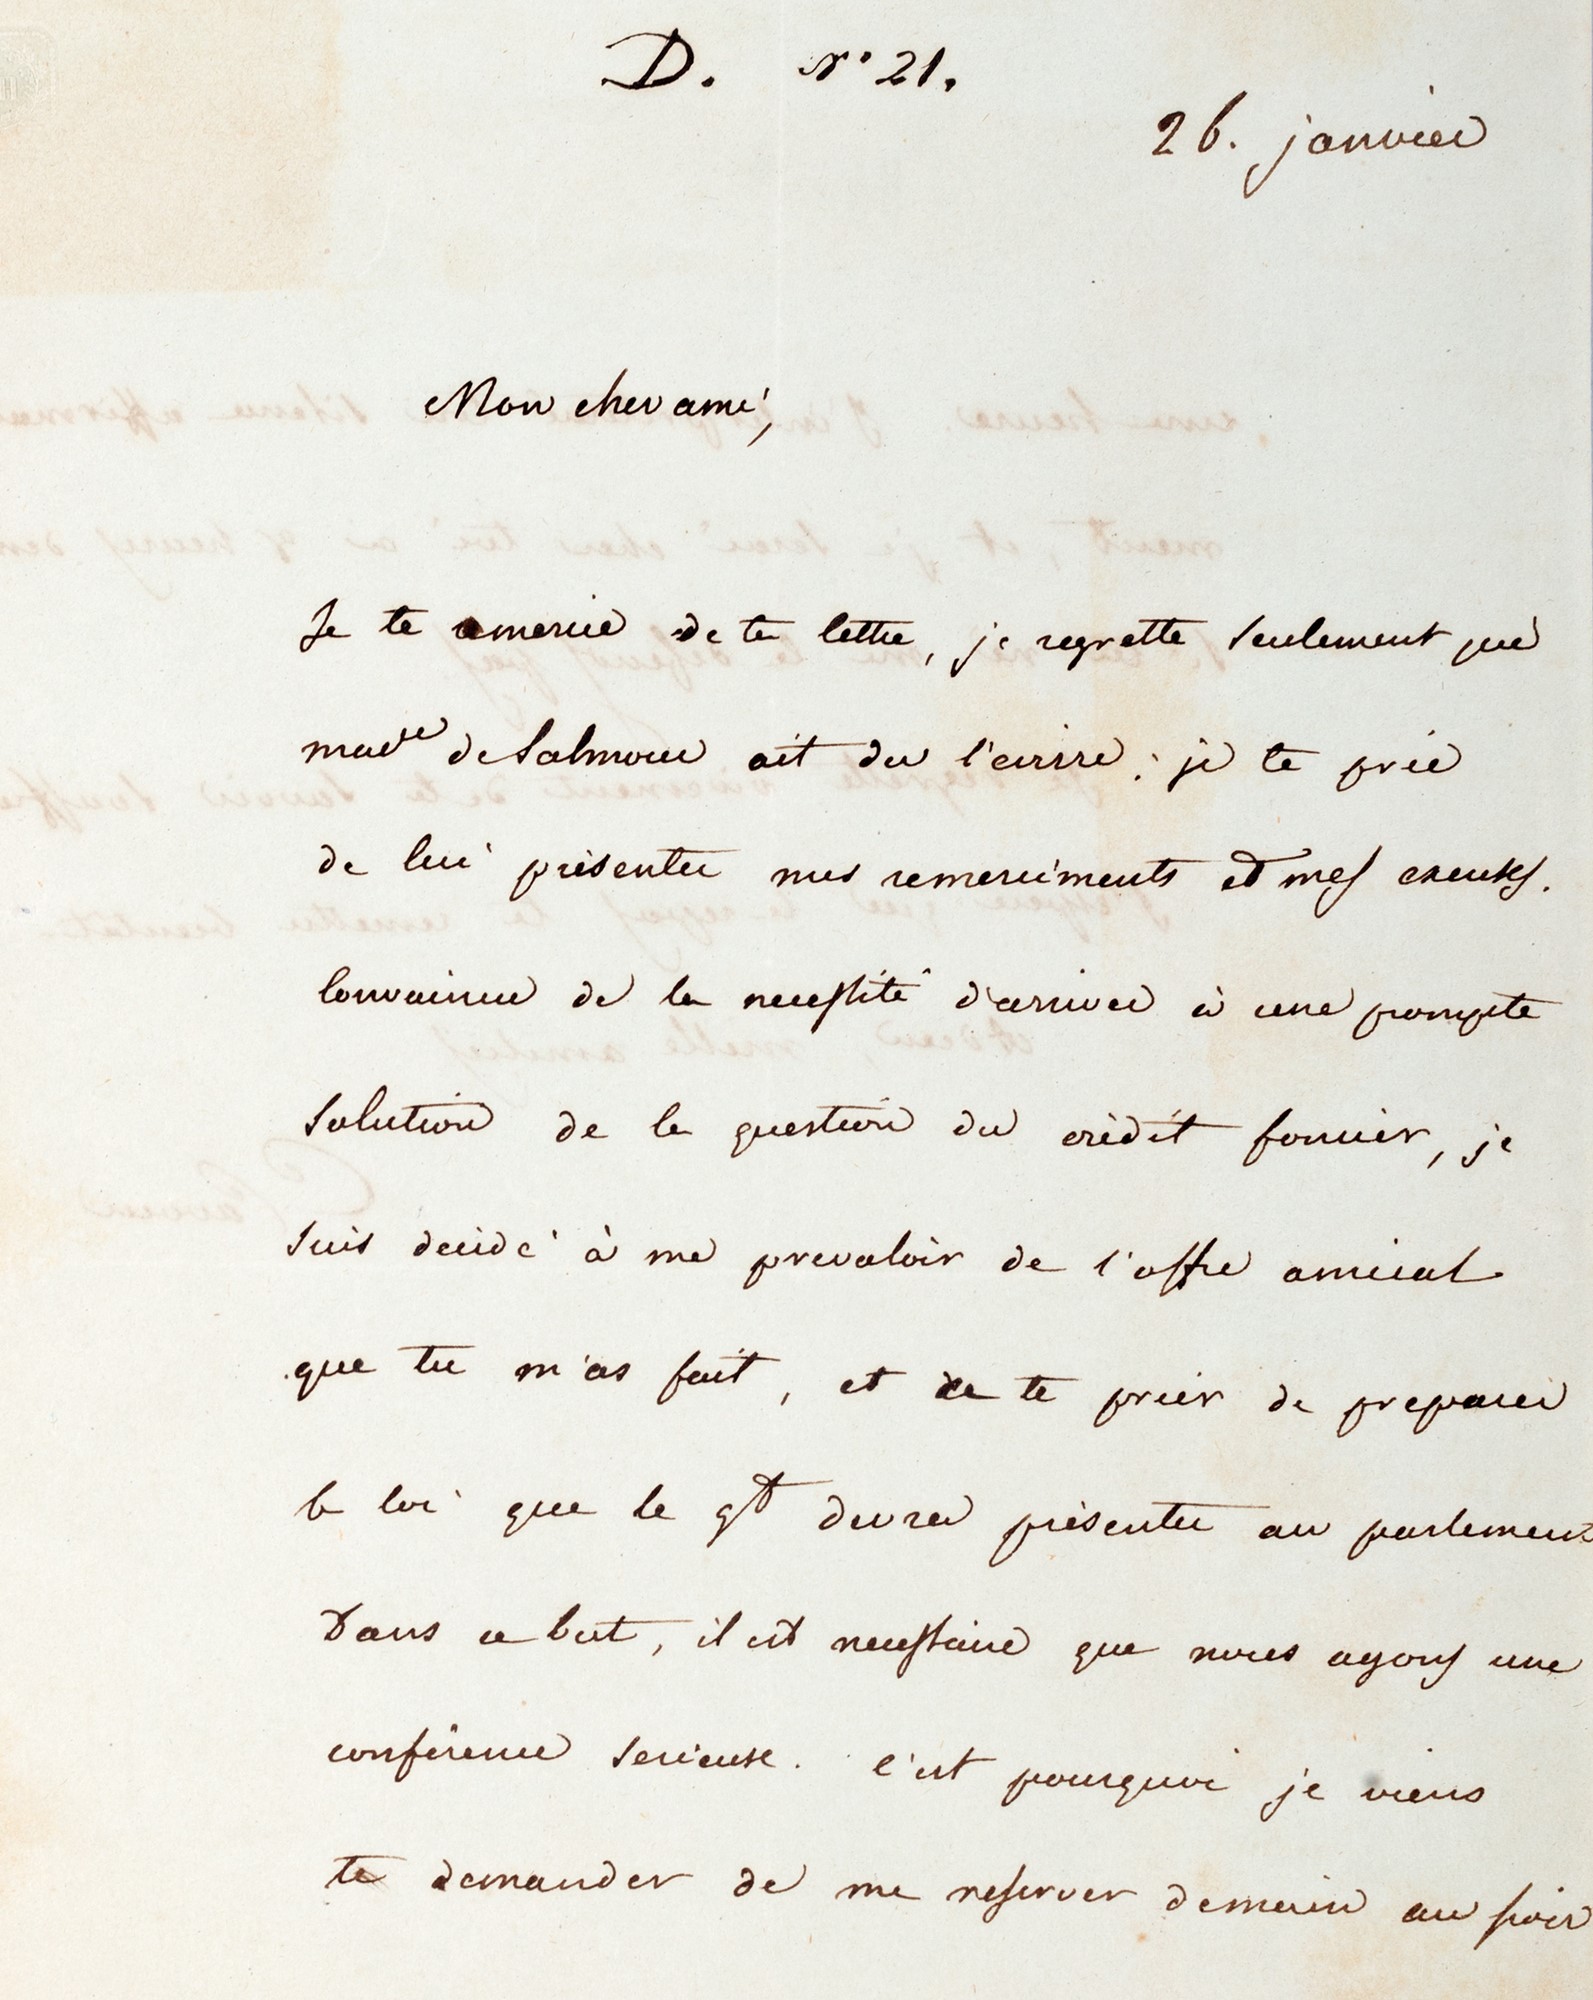 D. N° 21.
26. janvier
Mon cher ami,
Je te remercie de ta lettre, je regrette seulement que
made de Salmour ait du l'ecrire; je te prie
de lui présenter mes remerciments et mes excuses.
Convaincu de la necessité d'arriver à une prompte
solution de la question du crédit foncier, je
suis decidé à me prevaloir de l'offre amical
que tu m'as fait, et de te prier de preparer
la loi que le gt devra présenter au parlement
Dans ce but, il est necessaire que nous ayons une
conférence serieuse. C'est pourquoi je viens
te demander de me reserver demain au soir